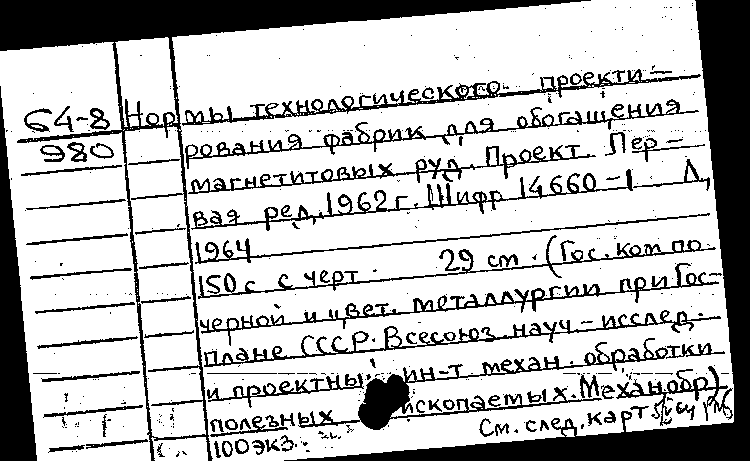 64-8 Нормы технологического проекти-
980 рования фабрик для обогащения
магнетитовых руд. Проект. Пер-
вая ред. 1962 г. Шифр 14660-1 Л,
1964
150 с с черт. 29 см. (Гос. ком по
черной и цвет. металлургии при Гос-
плане СССР. Всесоюз науч-исслед.
и проектный ин-т механ. обработки
полезных ископаемых. Механобр)
100 экз. См. след. карт